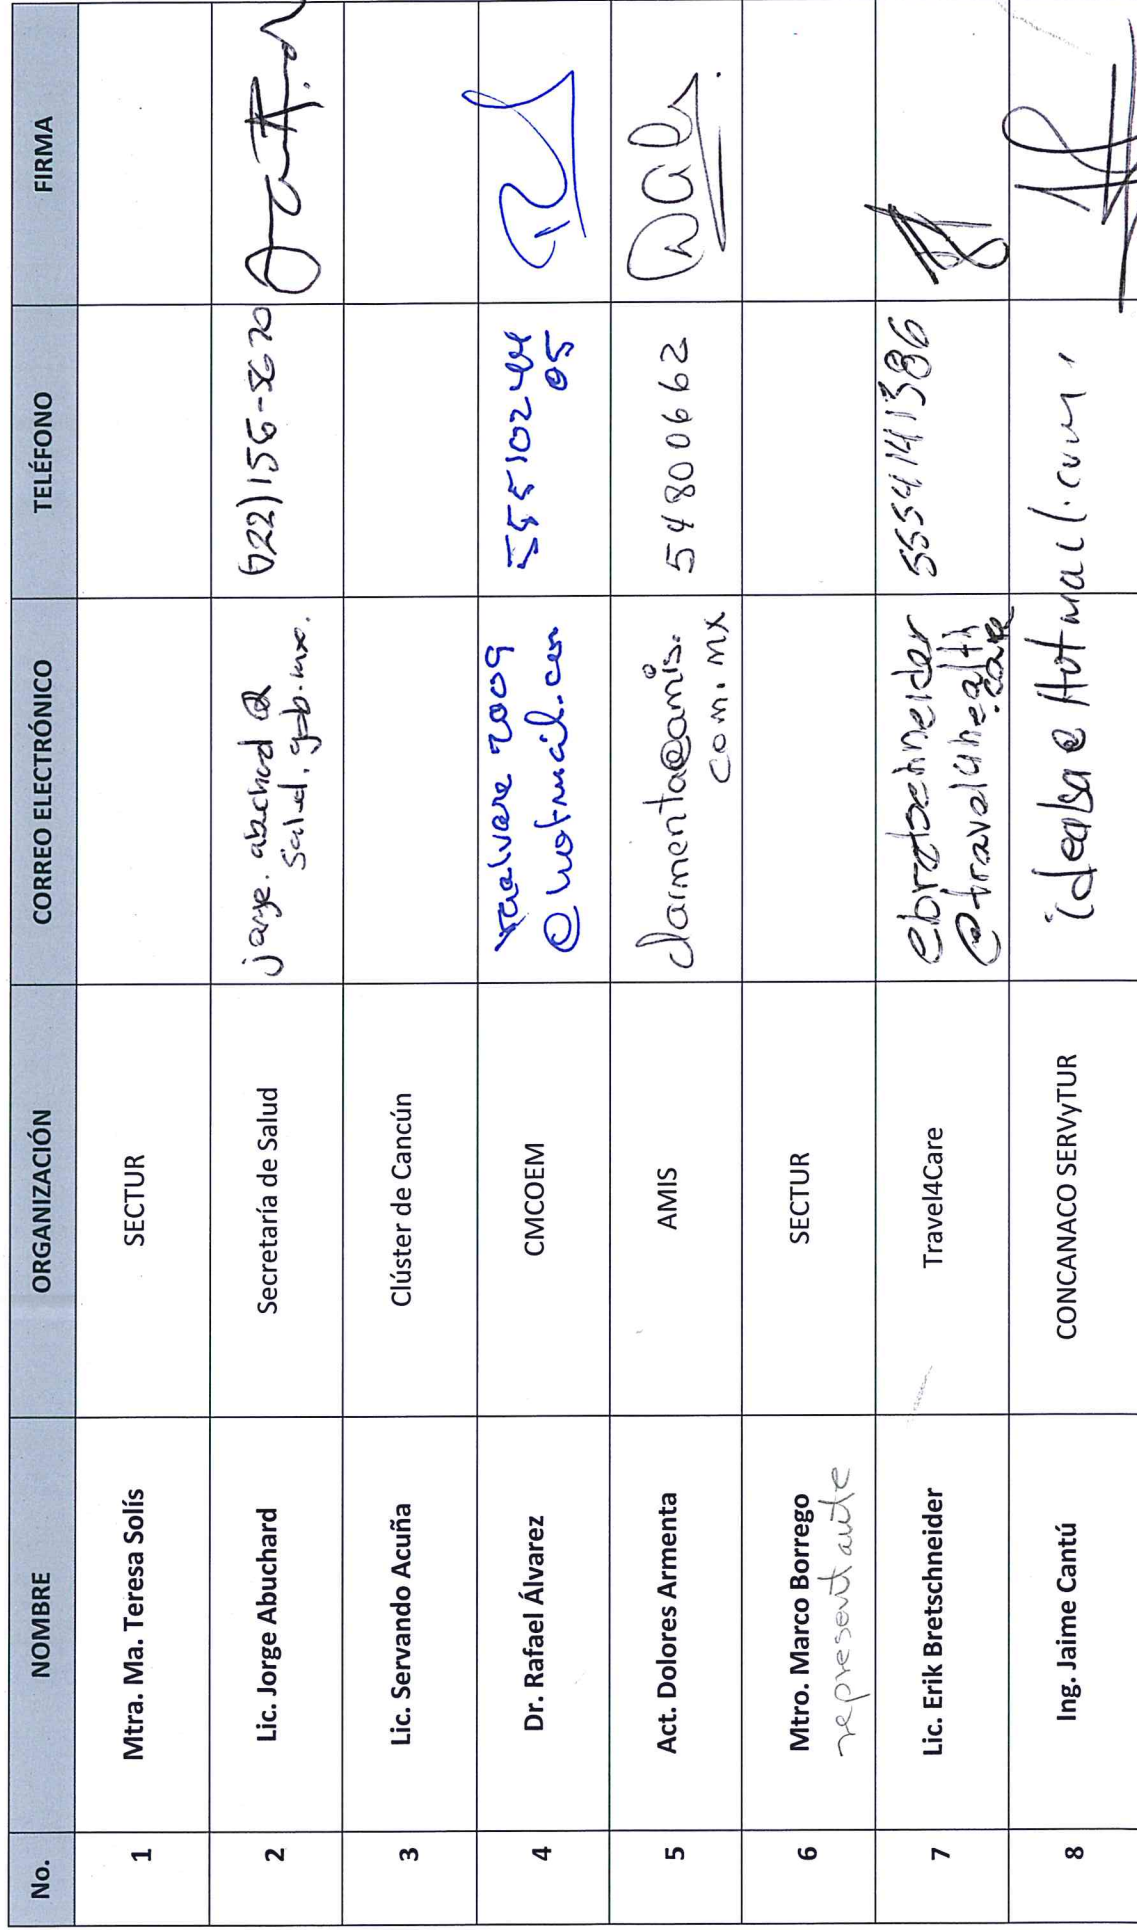 No. NOMBRE ORGANIZACIÓN CORREO ELECTRÓNICO TELÉFONO FIRMA
1 Mtra. Ma. Teresa Solís SECTUR
2 Lic. Jorge Abuchard Secretaría de Salud jorge.abuchard@
salud.gob.mx.
3 Lic. Servando Acuña Clúster de Cancún
4 Dr. Rafael Álvarez CMCOEM 2009
@hotmail.com
05
5 Act. Dolores Armenta AMIS darmenta@amis. 54800662
com.mx
6 Mtro. Marco Borrego SECTUR
representante
7 Lic. Erik Bretschneider Travel4Care ebretschneider 5554141386
8 Ing. Jaime Cantú CONCANACO SERVyTUR idealsa@Hotmail.com